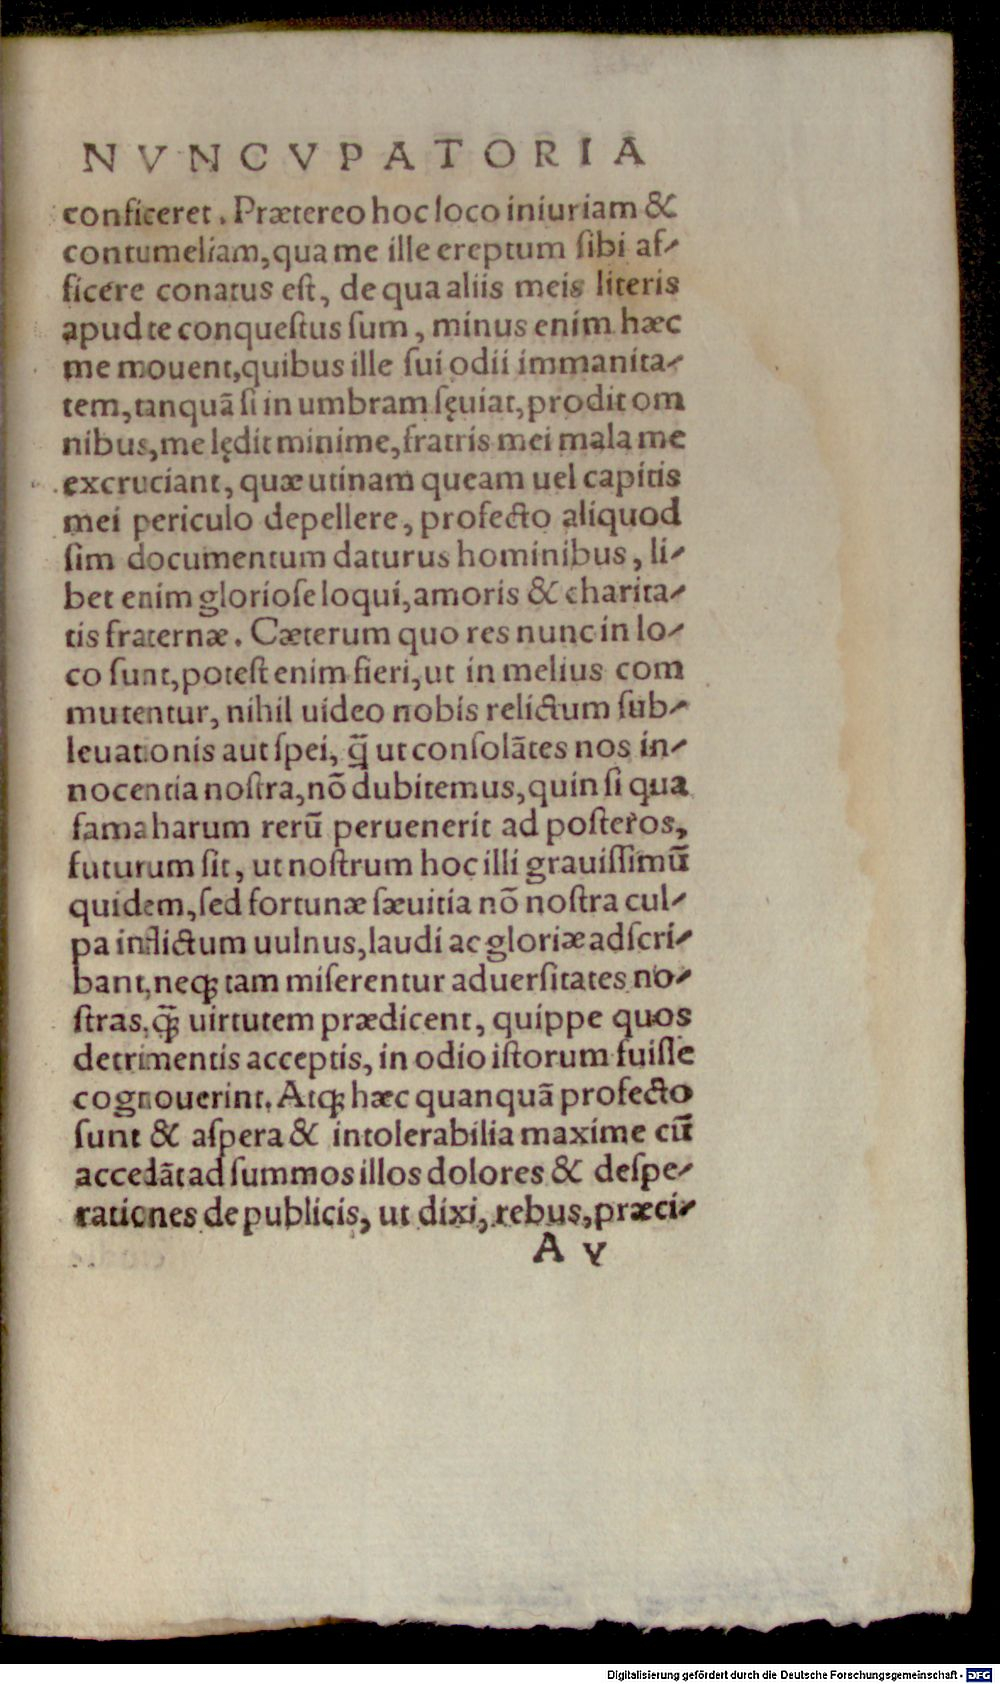 NVNCVPATORIA
conficeret. Prætereo hoc loco iniuriam &
contumeliam, qua me ille ereptum ſibi af-
ficere conatus eſt, de qua aliis meis literis
apud te conqueſtus ſum, minus enim hæc
me mouent, quibus ille ſui odii immanita-
tem, tanquã ſi in umbram ſęuiat, prodit om
nibus, me lędit minime, fratris mei mala me
excruciant, quæ utinam queam uel capitis
mei periculo depellere, profecto aliquod
ſim documentum daturus hominibus, li-
bet enim glorioſe loqui, amoris & charita-
tis fraternæ. Cæterum quo res nunc in lo-
co ſunt, poteſt enim fieri, ut in melius com
mutentur, nihil uideo nobis relictum ſub-
leuationis aut ſpei, q̃ ut conſolãtes nos in-
nocentia noſtra, nõ dubitemus, quin ſi qua
fama harum rerũ peruenerit ad poſteros,
futurum ſit, ut noſtrum hoc illi grauiſſimũ
quidem, ſed fortunæ ſæuitia nõ noſtra cul-
pa inflictum uulnus, laudi ac gloriæ adſcri-
bant, neqꝫ tam miſerentur aduerſitates no-
ſtras, q̃ꝫ uirtutem prædicent, quippe quos
detrimentis acceptis, in odio iſtorum fuiſſe
cognouerint. Atqꝫ hæc quanquã profecto
ſunt & aſpera & intolerabilia maxime cũ
accedãt ad ſummos illos dolores & deſpe-
rationes de publicis, ut dixi, rebus, præci-
A v
Digitalisierung gefördert durch die Deutsche Forschungsgemeinschaft - DFG